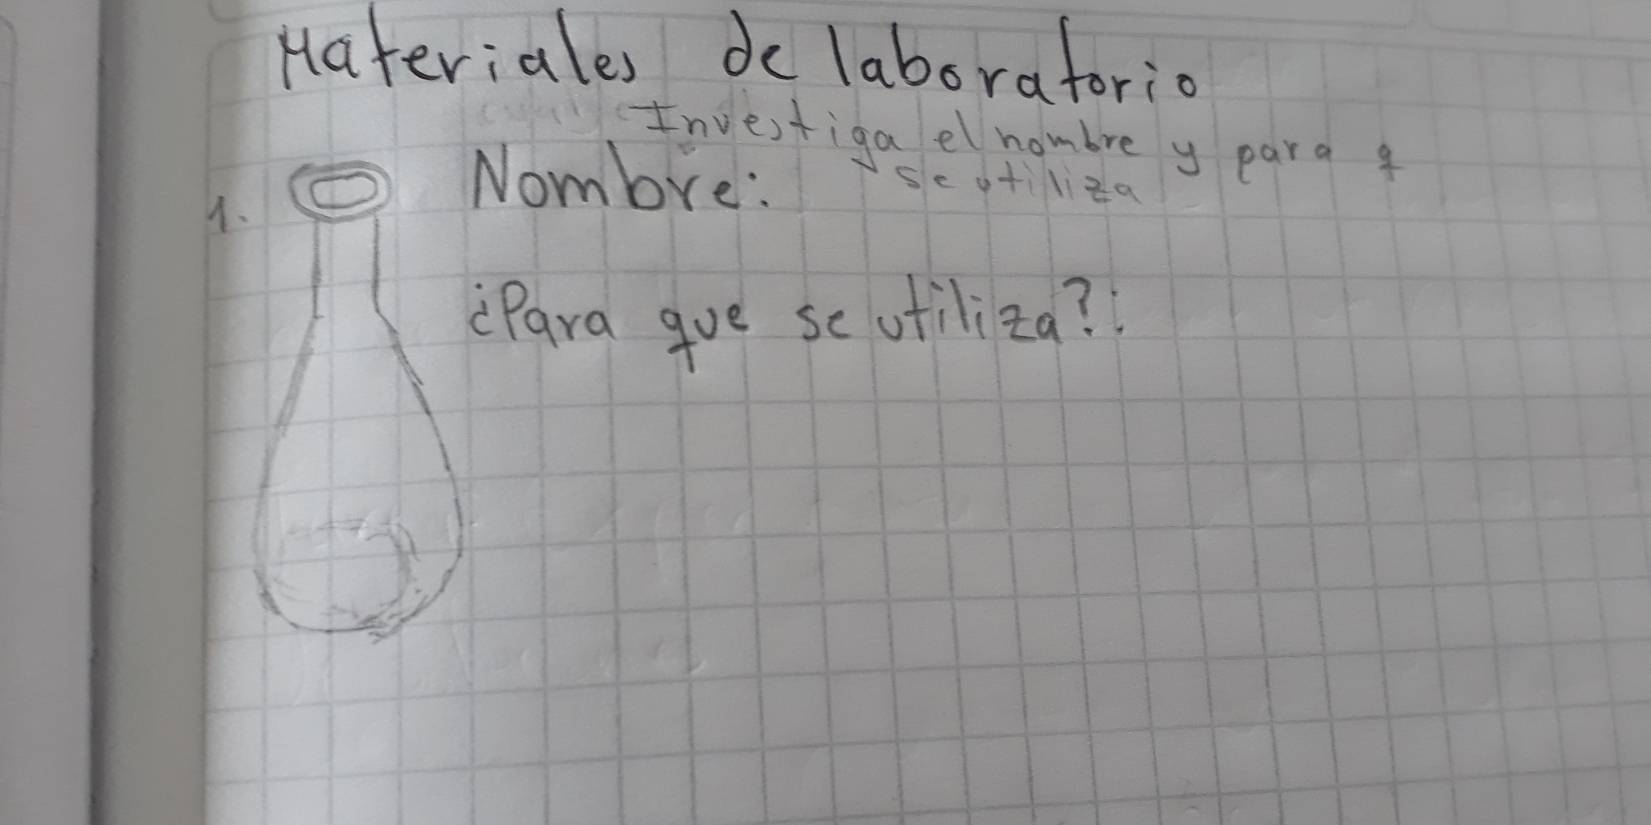 Materiales de laboratorio
Investiga el nombre y para q
se utiliza
1.
Nombre:
¿Para que se utiliza?: